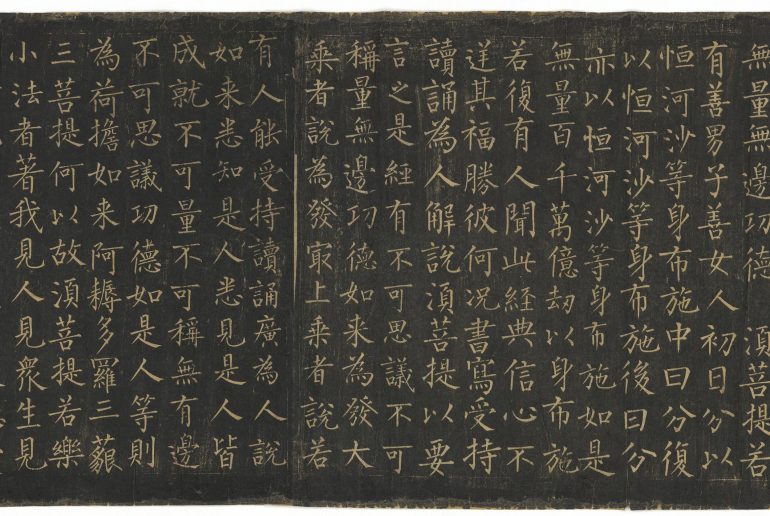 無量無邊功德 須菩提若
有善男子善女人初日分以
恒河沙等身布施中日分復
以恒河沙等身布施後日分
亦以恒河沙等身布施如是
無量百千萬億劫以身布施
若復有人聞此經典信心不
逆其福勝彼何况書寫受持
讀誦為人解說須菩提以要
言之是經有不可思議不可
稱量無邊功德如来為發大
乗者說為發冣上乗者說若
有人能受持讀誦廣為人說
如来悉知是人悉見是人皆
成就不可量不可稱無有邊
不可思議功德如是人等則
為荷擔如来阿耨多羅三藐
三菩提何以故須菩提若樂
小法者著我見人見眾生見